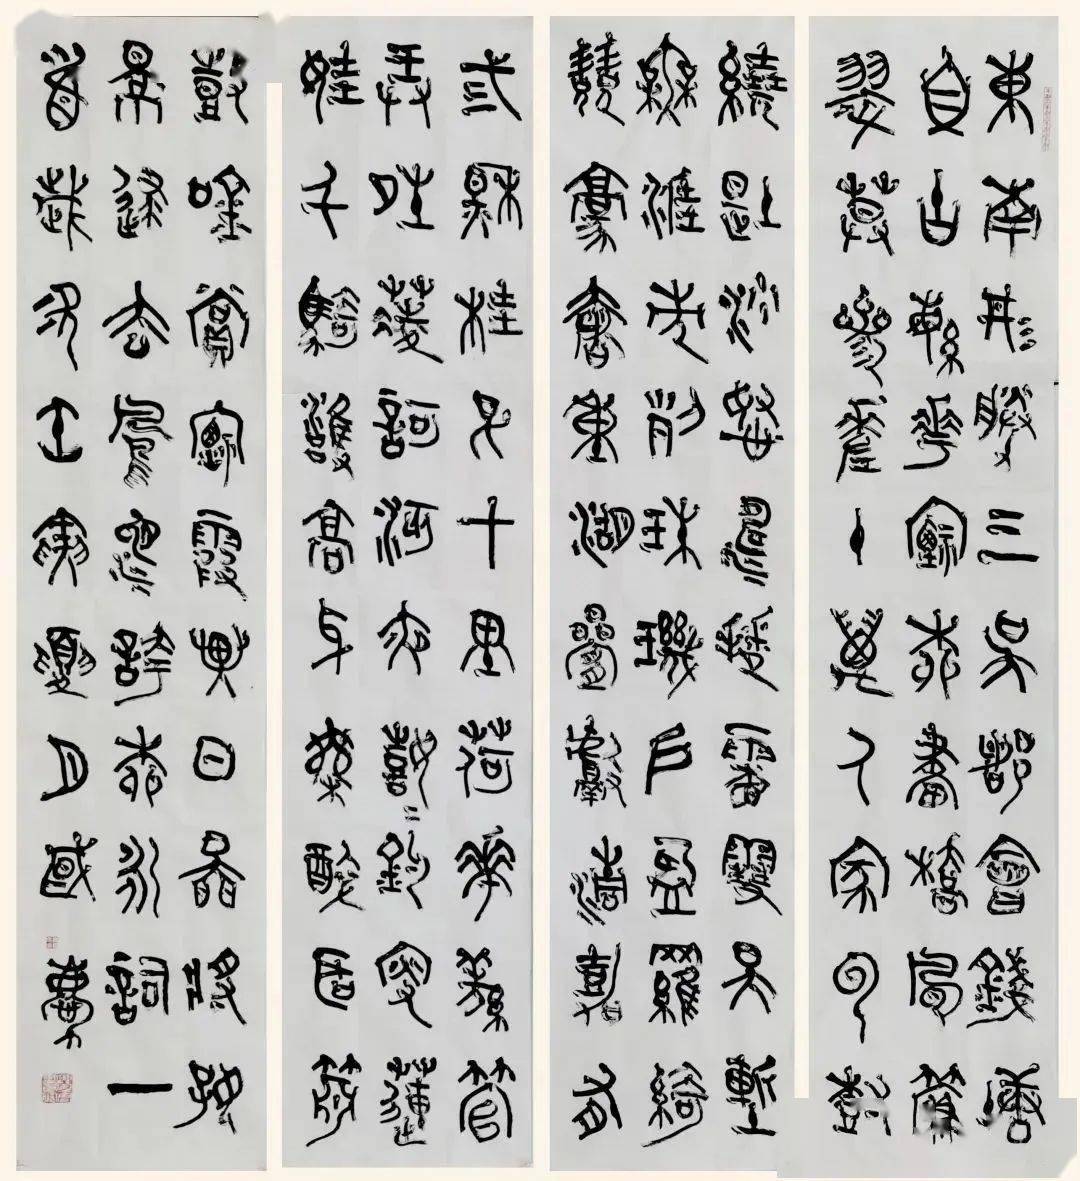 東南形勝三吳都會錢塘
自古繁華煙柳畫橋風簾
翠幕參差十萬人家雲樹
繞堤沙怒濤卷霜雪天塹
無涯市列珠璣戶盈羅綺
競豪奢重湖疊巘清嘉有
弎秋桂子十里荷花羌管
弄晴菱歌泛夜嬉=釣叟蓮
娃千騎擁高牙乘醉聽簫
鼓吟賞煙霞異日圖將好
景歸去鳳池誇柳永詞一
首歲次壬寅夏月國